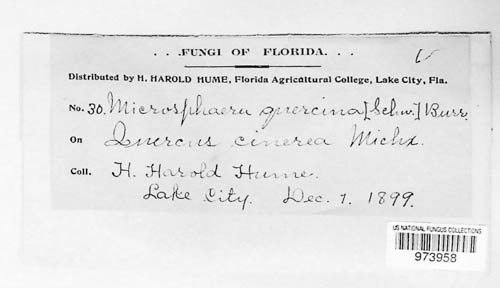 . . .FUNGI OF FLORIDA. . .
Distributed by H. HAROLD HUME, Florida Agricultural College, Lake City, Fla.
No. 30. Microsphaera quercina [Schw.] Burr.
On Quercus cinerea Michx.
Coll. H. Harold Hume.
Lake City. Dec. 7. 1899.
US NATIONAL FUNGUS COLLECTIONS
973958